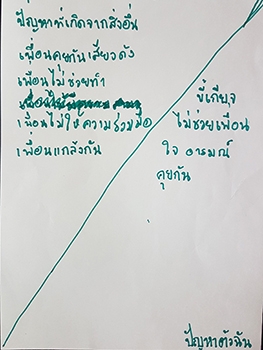 ปัญหาที่เกิดจากสิ่งอื่น
เพื่อนคุยกันเสียงดัง
เพื่อนไม่ช่วยทำ
เพื่อนไม่ให้ความร่วมมือ
เพื่อนแกล้งกัน
ขี้เกียจ
ไม่ช่วยเพื่อน
ใจ อารมณ์
คุยกัน
ปัญหาตัวฉัน